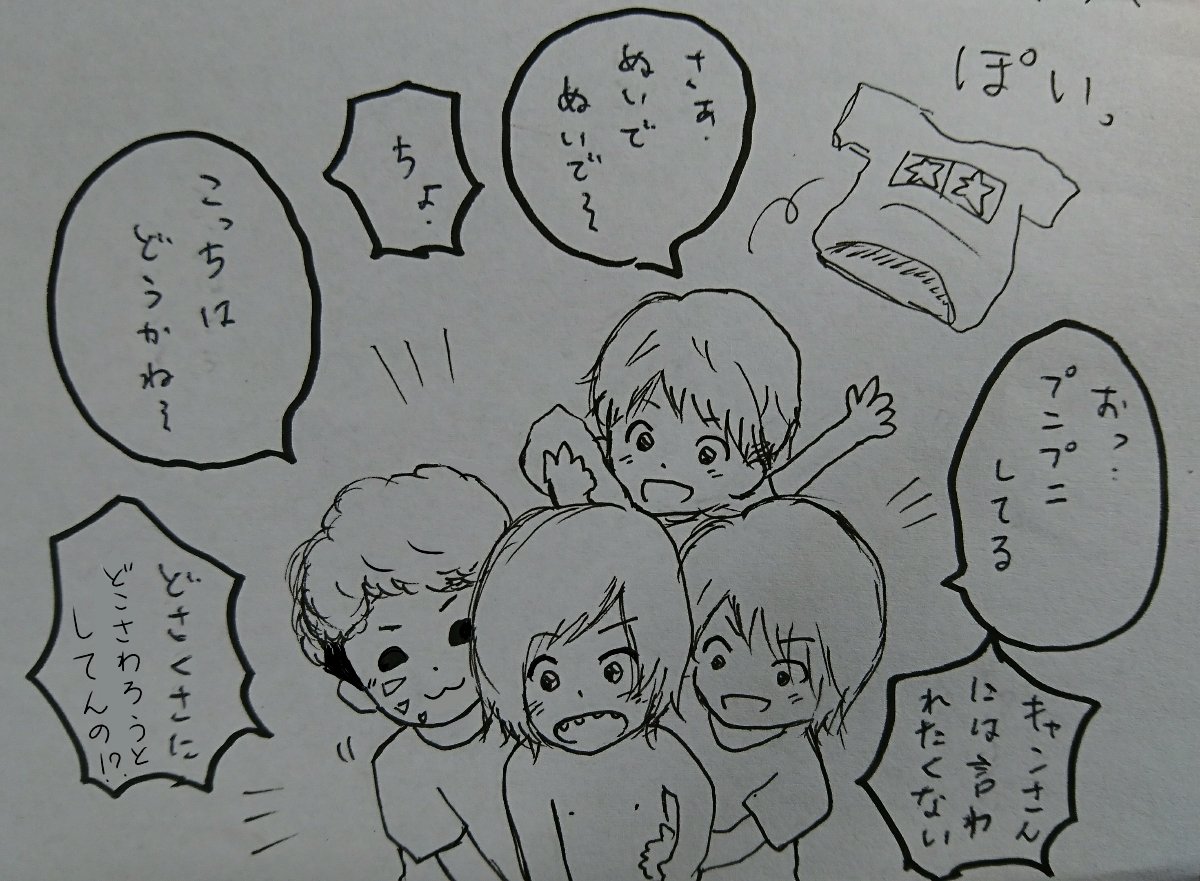 ぽい。
さぁ.
ぬいで
ぬいで〜
ちょ.
こっちは
どうかね〜
おっ.
プニプニ
してる
キャンさん
には言わ
れたくない
どさくさに
どこさわろうと
してんの!?